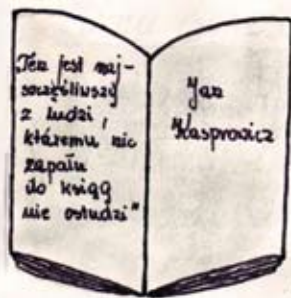 "Ten jest naj-
szczęśliwszy
z ludzi,
któremu nic
zapału
do ksiąg
nie ostudzi"
Jan
Kasprowicz